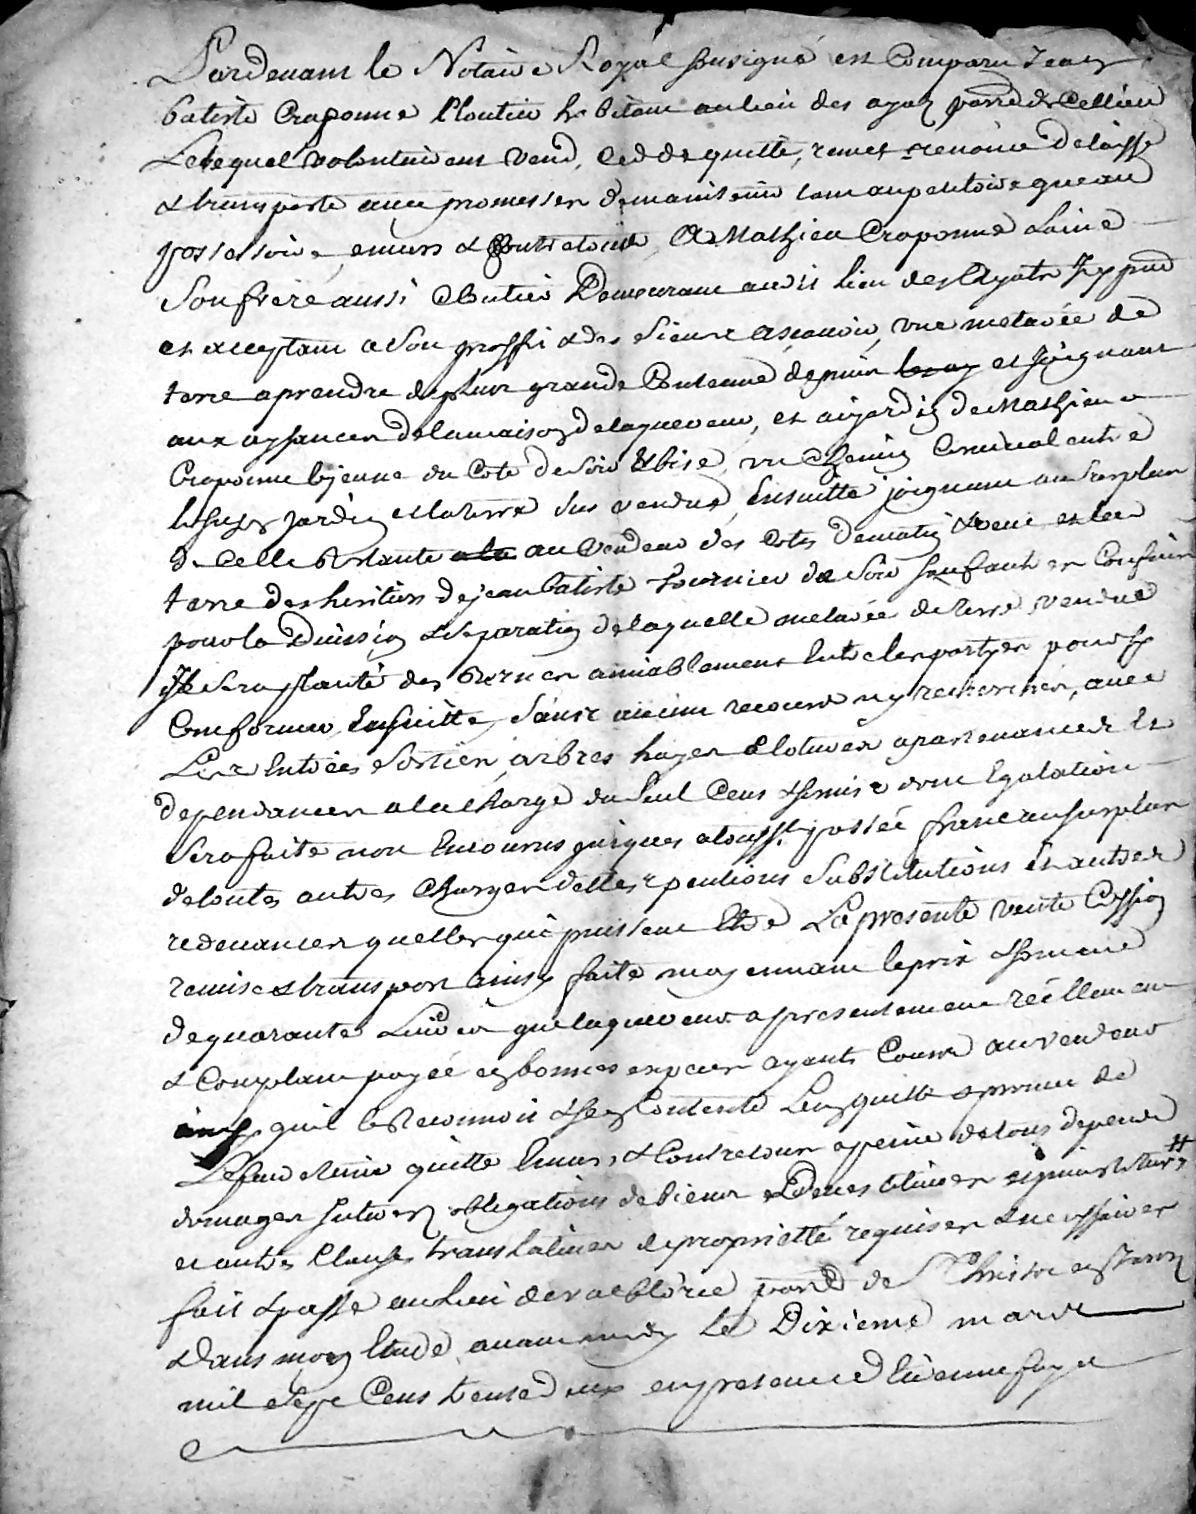 Pardevant le Notaire Royal sousigné est Comparu Jean
batiste Craponne Cloutier habitant au lieu des ayaz parr. de Cellieu
Lequel volontairement vend, cedde quitte, remet renonce delaisse
& transporte avec promesses de maintenir tant au petitoire que au
possessoire envers & contre tous, A Mathieu Craponne Lainé
Son frere aussi Cloutier Demeurant audit lieu des Ayats Icy pnt
et acceptant a Son proffit & des Siens ascavoir, une metarée de
terre aprendre de plus grande Contenue depuis et joignant
aux aysances de la maison de laquereur, et au jardin de Mathieu
Craponne le jeune du Coté de soir & bise, un Chemin Comunal entre
le susd. jardin et la terre sus vendue, Ensuitte joignant au surplus
de Celle restante au vendeur des Cotés de matin & vent et la
terre des heritiers de jean batiste fournier de soir sauf autres Confins
pour la Division & separation de laquelle metarée de terre vendue
il Sera planté des bornes amiablement Entre les partyes pour s'y
Conformer Ensuitte, Sans aucun recours ny recherches, avec
Les Entrées Sorties, arbres hayes Clotures apartenances Et
dependances a la charge du Seul Cens & servis dont Egalation
Sera faite non Encourus jusques a tousst. passée franc au surplus
de toutes autres Charges dettes pentions Substitutions Et autres
redevances quelles qui puissent Etre La presente vente Cession
remise & transport ainsy faite moyennant le prix & somme
de quarante Livres que laquereur a presentement réellement
& Comptant payée en bonnes especes ayants Cours au vendeur
ainsy qu'il le Reconnoit & s'en Contente Len quitte & promet de
Lefaire tenir quitte Envers & Contre tous a peine de tous depens
domages Interez obligations de biens
et autres Clauses translatives de proprietté requises & necessaires
fait & passé au lieu de valfloríe parr. de St Christo en Jarez
& Dans mon Etude avant midy Le Dixieme mars
mil sept Cens trente deux en presence d'Etienne faye